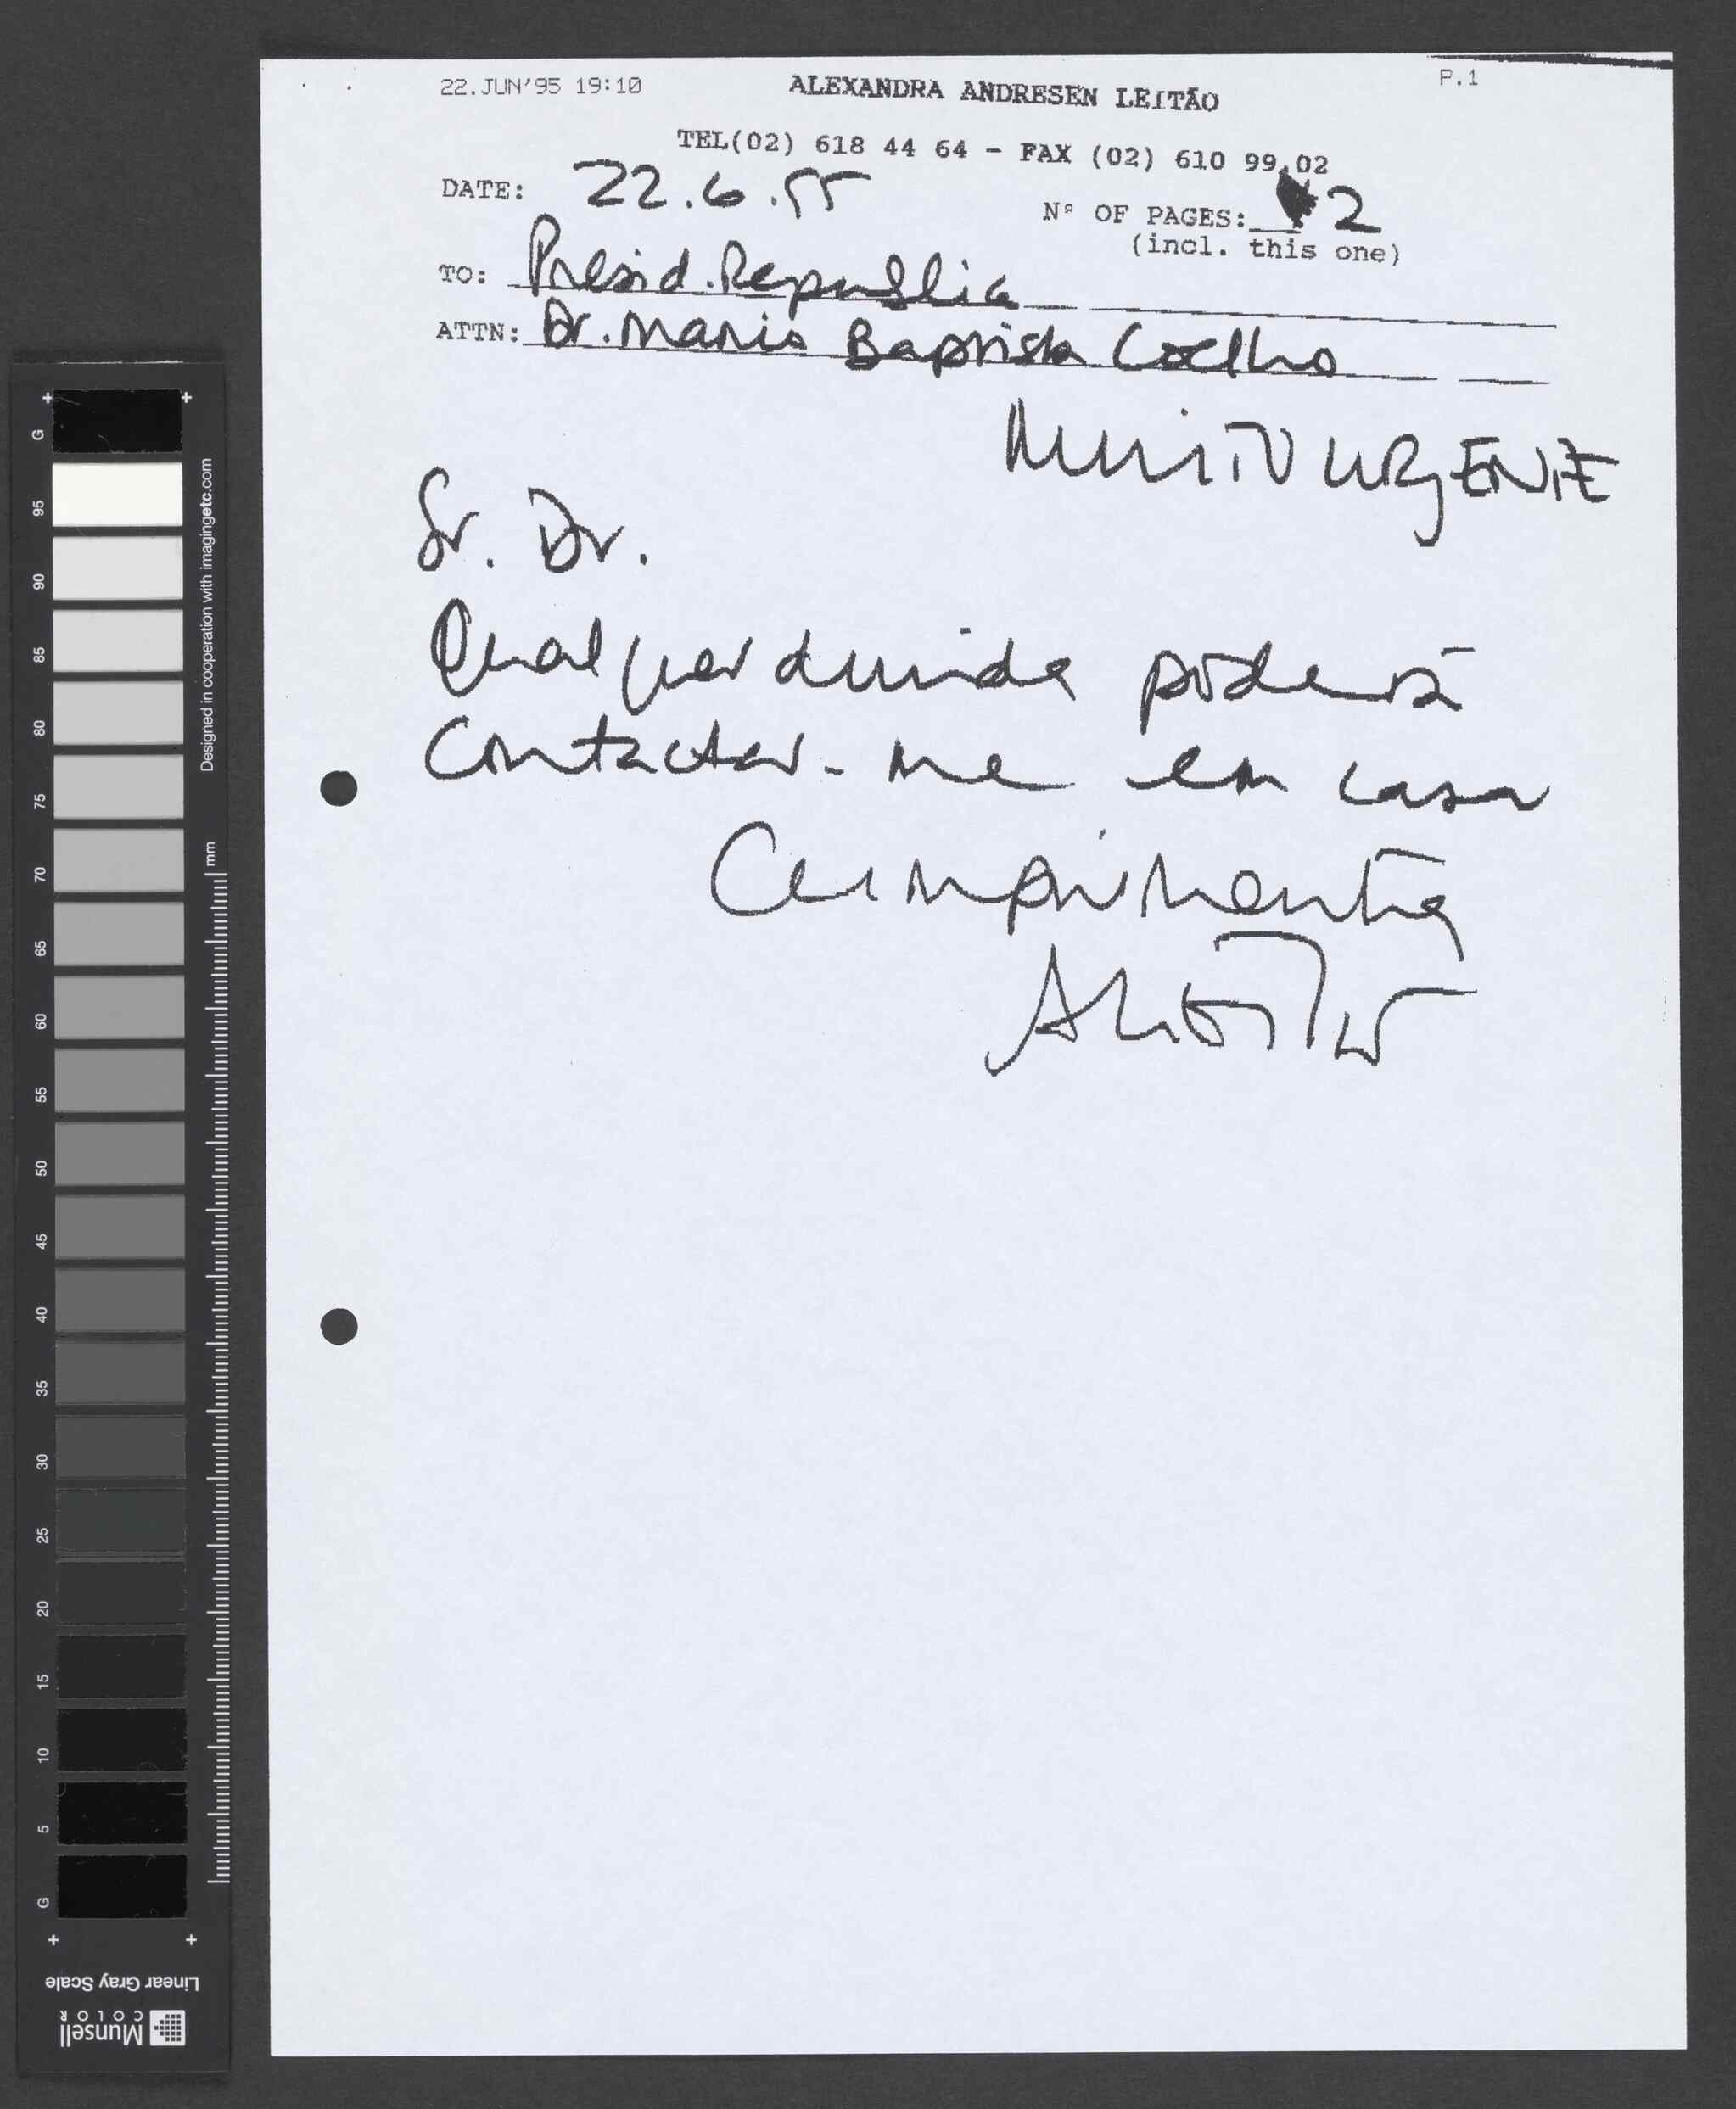 22.JUN'95 19:10 ALEXANDRA ANDRESEN LEITÃO P.1
TEL(02) 618 44 64 - FAX (02) 610 99 02
DATE: 22.6.95
Nº OF PAGES: 2
(incl. this one)
TO: Presid. Republica
ATTN: Dr. Mario Baptista Coelho
MUITO URGENTE
Sr. Dr.
Qualquer duvida poderá
contactar-me em casa
Cumprimentos
G 95 90 85 80 75 70 65 60 55 50 45 40 35 30 25 20 15 10 5 G
Designed in cooperation with imagingetc.com
mm
Linear Gray Scale
Munsell
COLOR